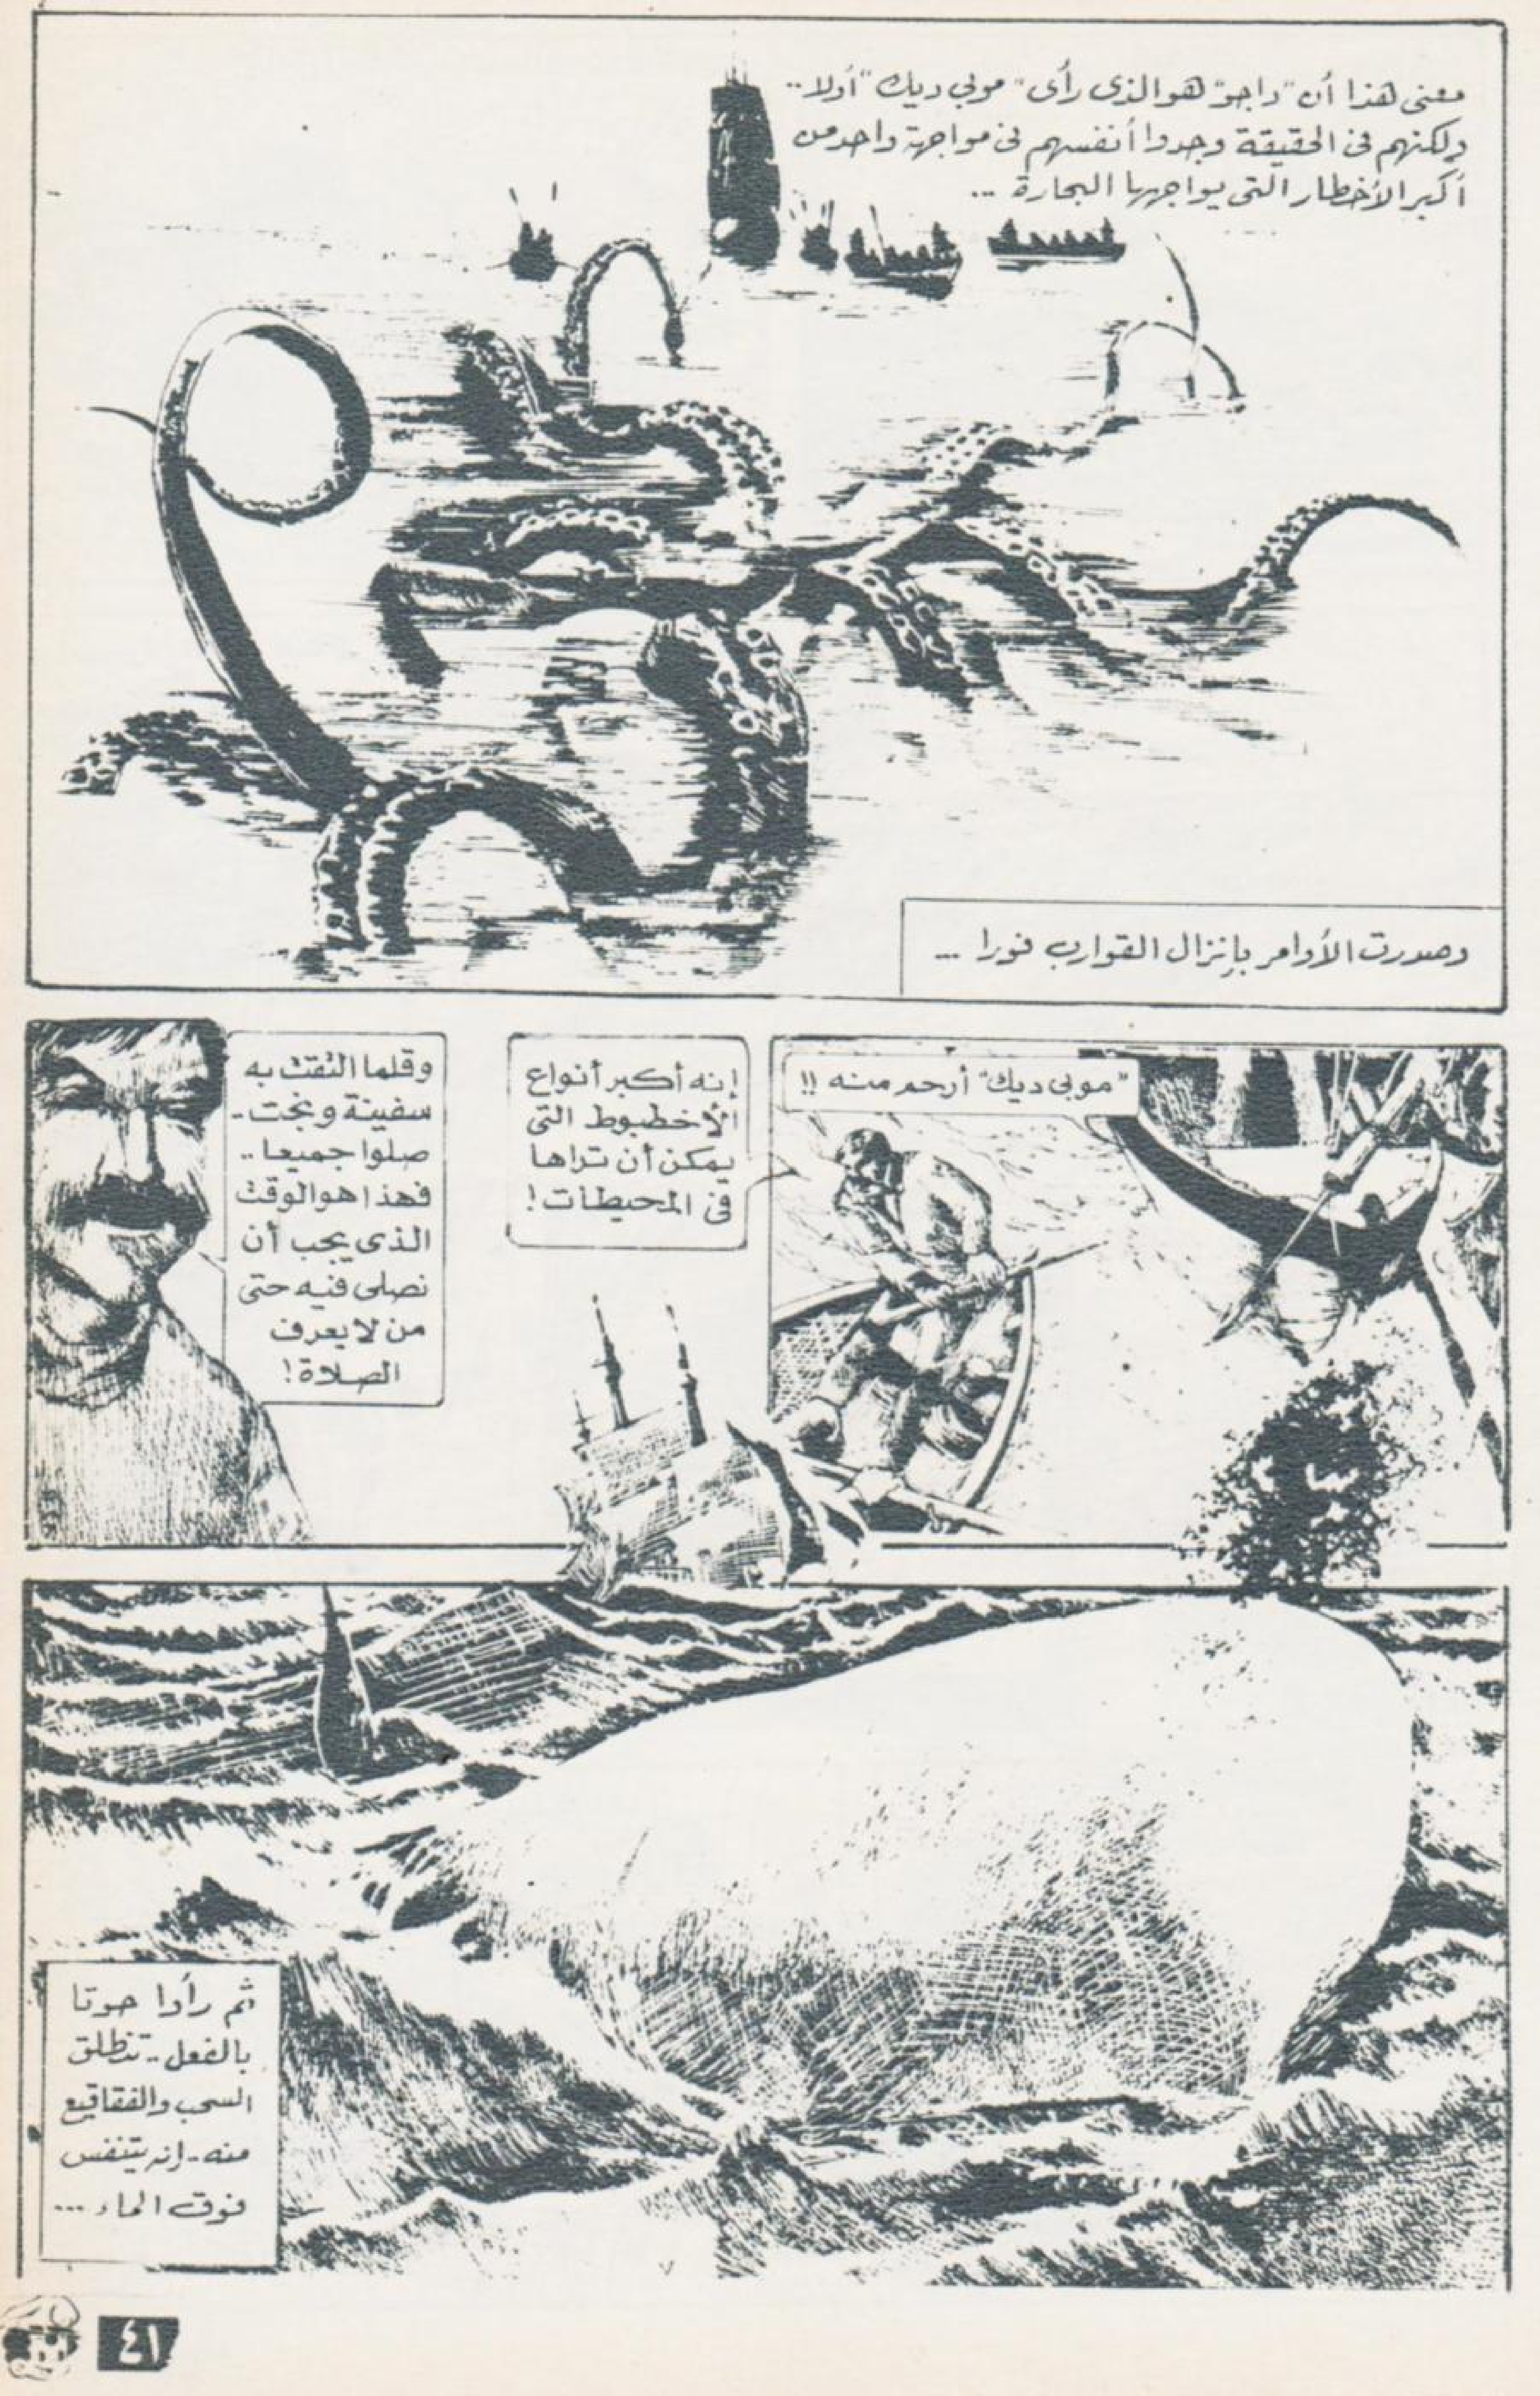 معنى هذا أن "داجو" هو الذى رأى "موبي ديك" أولا..
ولكنهم فى الحقيقة وجدوا أنفسهم فى مواجهة واحد من
أكبر الأخطار التى يواجهها البحارة ...
وصدرت الأوامر بإنزال القوارب فورا ...
"موبى ديك" أرحم منه !!
إنه أكبر أنواع
الأخطبوط التى
يمكن أن تراها
فى المحيطات!
وقلما التقت به
سفينة ونجت -
صلوا جميعا ..
فهذا هو الوقت
الذى يجب أن
نصلى فيه حتى
من لا يعرف
الصلاة!
ثم رأوا حوتا
بالفعل .. تنطلق
السحب والفقاقيع
منه - إنه يتنفس
فوق الماء ...
٧
٤١